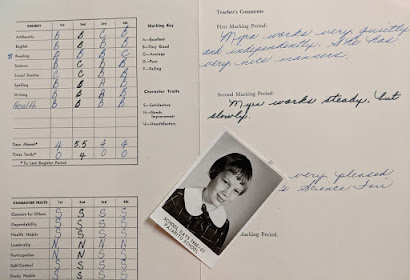 SUBJECT 1st 2nd 3rd 4th
Arithmetic B B C B
English B B B B
Reading B B B C
Science B C B B
Social Studies C C B B
Spelling B B A B
Writing B B A B
Health B B B B
Days Absent* 4 5.5 4 4
Times Tardy* 0 4 0 0
*To Last Register Period
CHARACTER TRAITS 1st 2nd 3rd 4th
Concern for Others S S S S
Dependability S S S S
Health Habits S S S S
Leadership N N N N
Participation N N S S
Self-Control S S S S
Study Habits S S S S
Marking Key
A—Excellent
B—Very Good
C—Average
D—Poor
F—Failing
Character Traits
S—Satisfactory
N—Needs
Improvement
U—Unsatisfactory
Teacher's Comments
First Marking Period:
Myra works very quietly
and independently. She has
very nice manners.
Second Marking Period:
Myra works steady, but
slowly.
very pleased
Science Fair
Marking Period:
SCHOOL DAYS 1960-61
PAJARITO SCHOOL